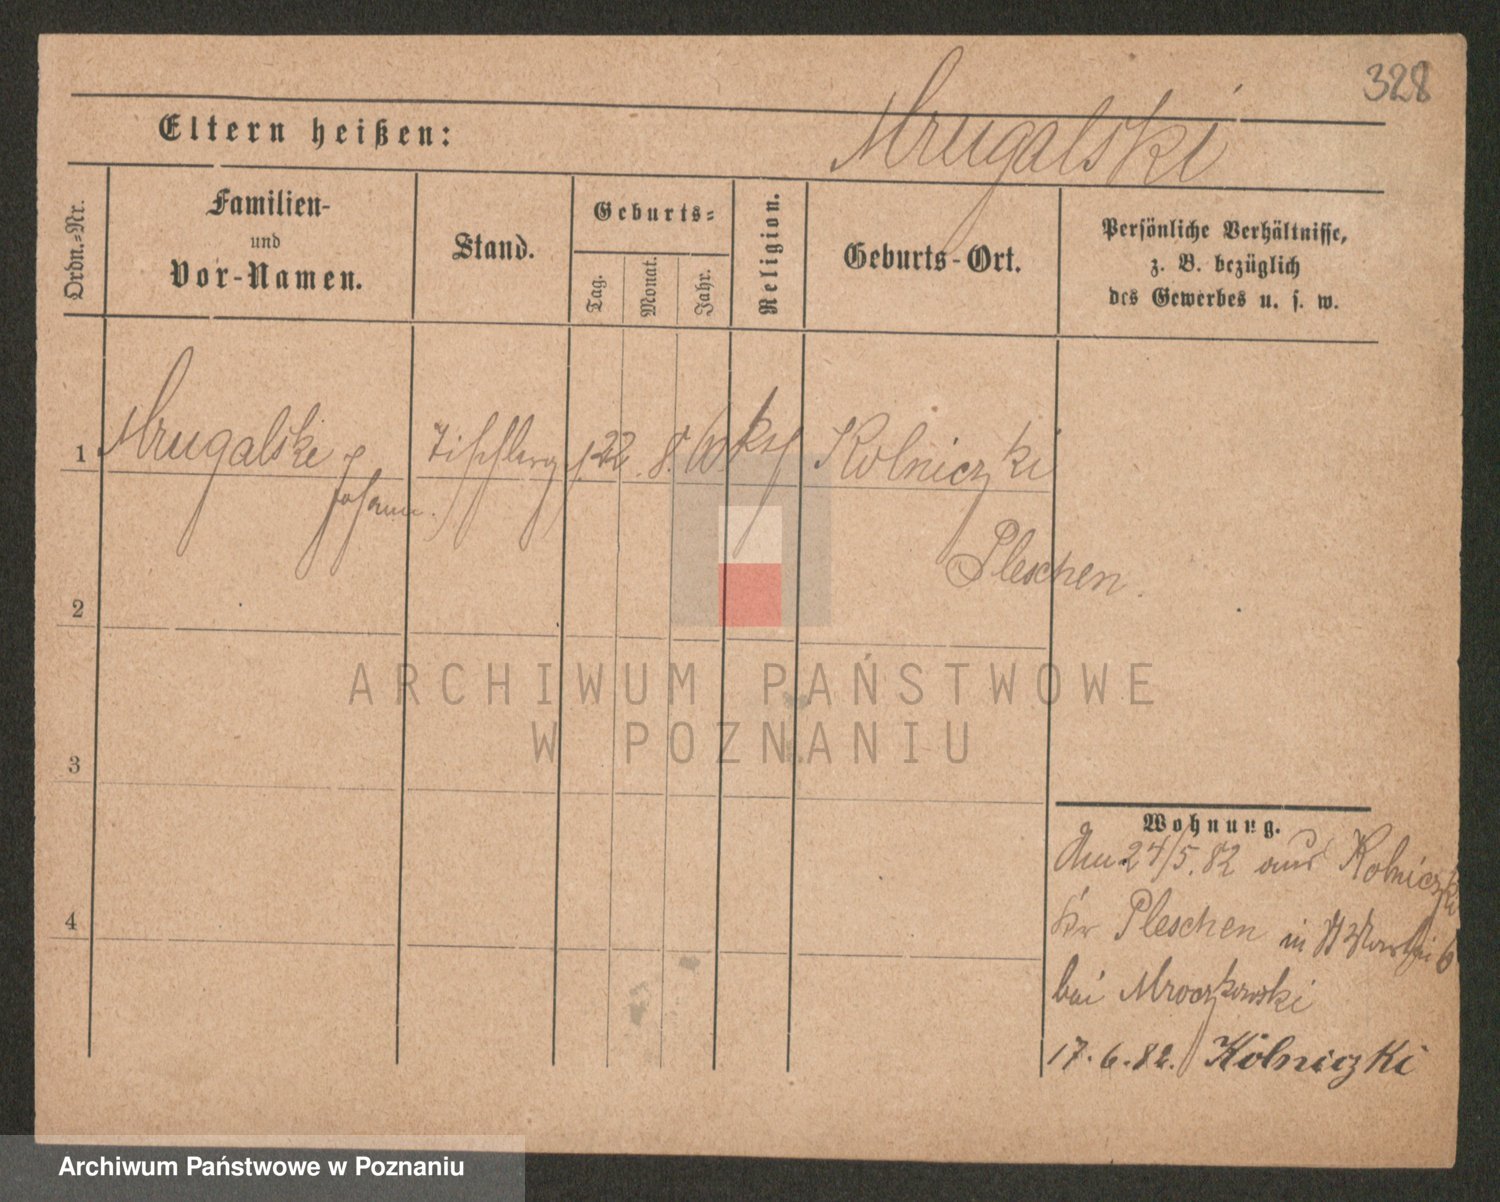 328
Mrugalski
Eltern heißen:
Ordn.=Nr.
Familien-
und
Vor-Namen.
Stand.
Geburts=
Tag.
Monat.
Jahr.
Religion.
Geburts-Ort.
Persönliche Verhältnisse,
z. B. bezüglich
des Gewerbes u. s. w.
1 Mrugalski 22 8. 60 kth Kolniczki
Johann.
Pleschen.
2
3
4
Wohnung.
Am 24/5. 82 aus Kolniczki
Kr Pleschen in St Martin 6
bei Mroczkowski
17.6.82. Kolniczki
ARCHIWUM PAŃSTWOWE
W POZNANIU
Archiwum Państwowe w Poznaniu